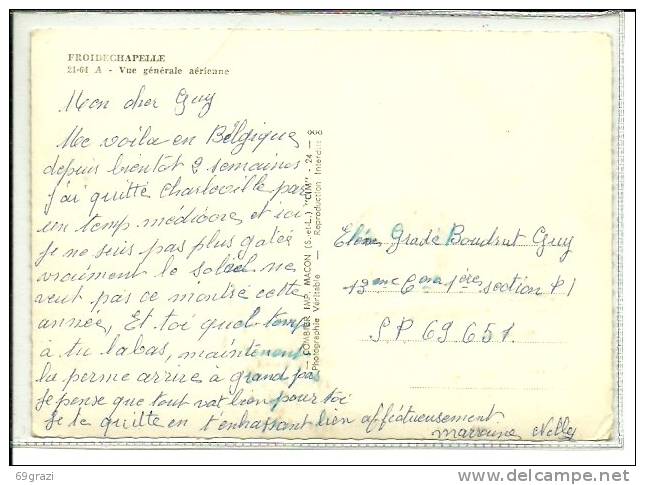 FROIDECHAPELLE
21-61 A - Vue générale aérienne
Mon cher Guy
Me voila en Belgique
depuis bientot 2 semaines
j'ai quitté Charleville par
un temp médiocre et ici
je ne suis pas plus gatée
vraiment le soleil ne
veut pas ce montré cette
année, Et toi quel temp
à tu labas, maintenant
la perme arrive à grand pas
Je pense que tout vat bien pour toi
Je te quitte en t'enbrassant bien affectueusement
marraine Nelly
COMBIER IMP. MACON (S.-et-L.) "CIM" - 24 -
Photographie Véritable - Reproduction Interdite
Elève Gradé Boudrut Guy
13eme Com 1ère section P I
SP 69 651.
69grazi
delcampe.net